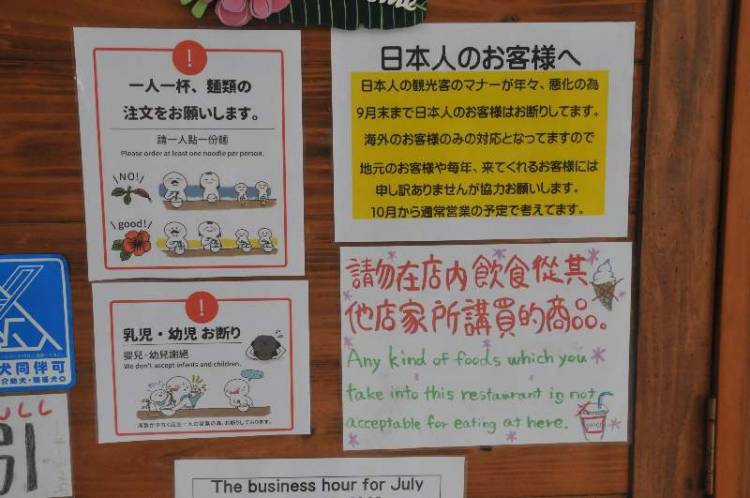 一人一杯、麺類の
注文をお願いします。
請一人點一份麵
Please order at least one noodle per person.
NO!
good!
日本人のお客様へ
日本人の観光客のマナーが年々、悪化の為
9月末まで日本人のお客様はお断りしてます。
海外のお客様のみの対応となってますので
地元のお客様や毎年、来てくれるお客様には
申し訳ありませんが協力お願いします。
10月から通常営業の予定で考えてます。
乳児・幼児 お断り
嬰兒・幼兒謝絕
We don't accept infants and children.
請勿在店內飲食從其
他店家所講買的商品。
Any kind of foods which you
take into this restaurant is not
acceptable for eating at here.
犬同伴可
The business hour for July